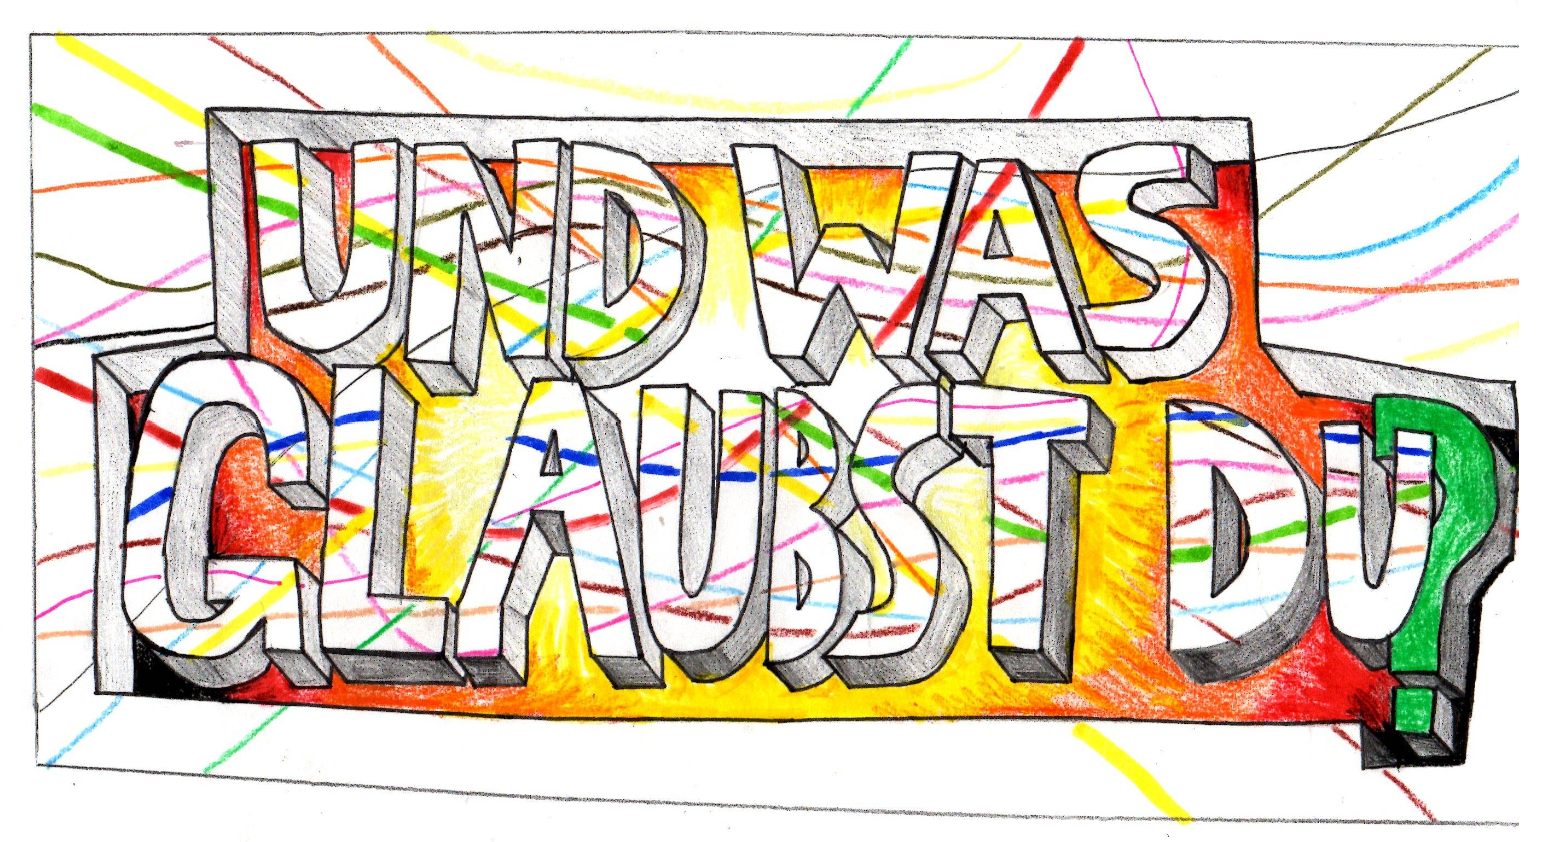 UND WAS
GLAUBST DU?